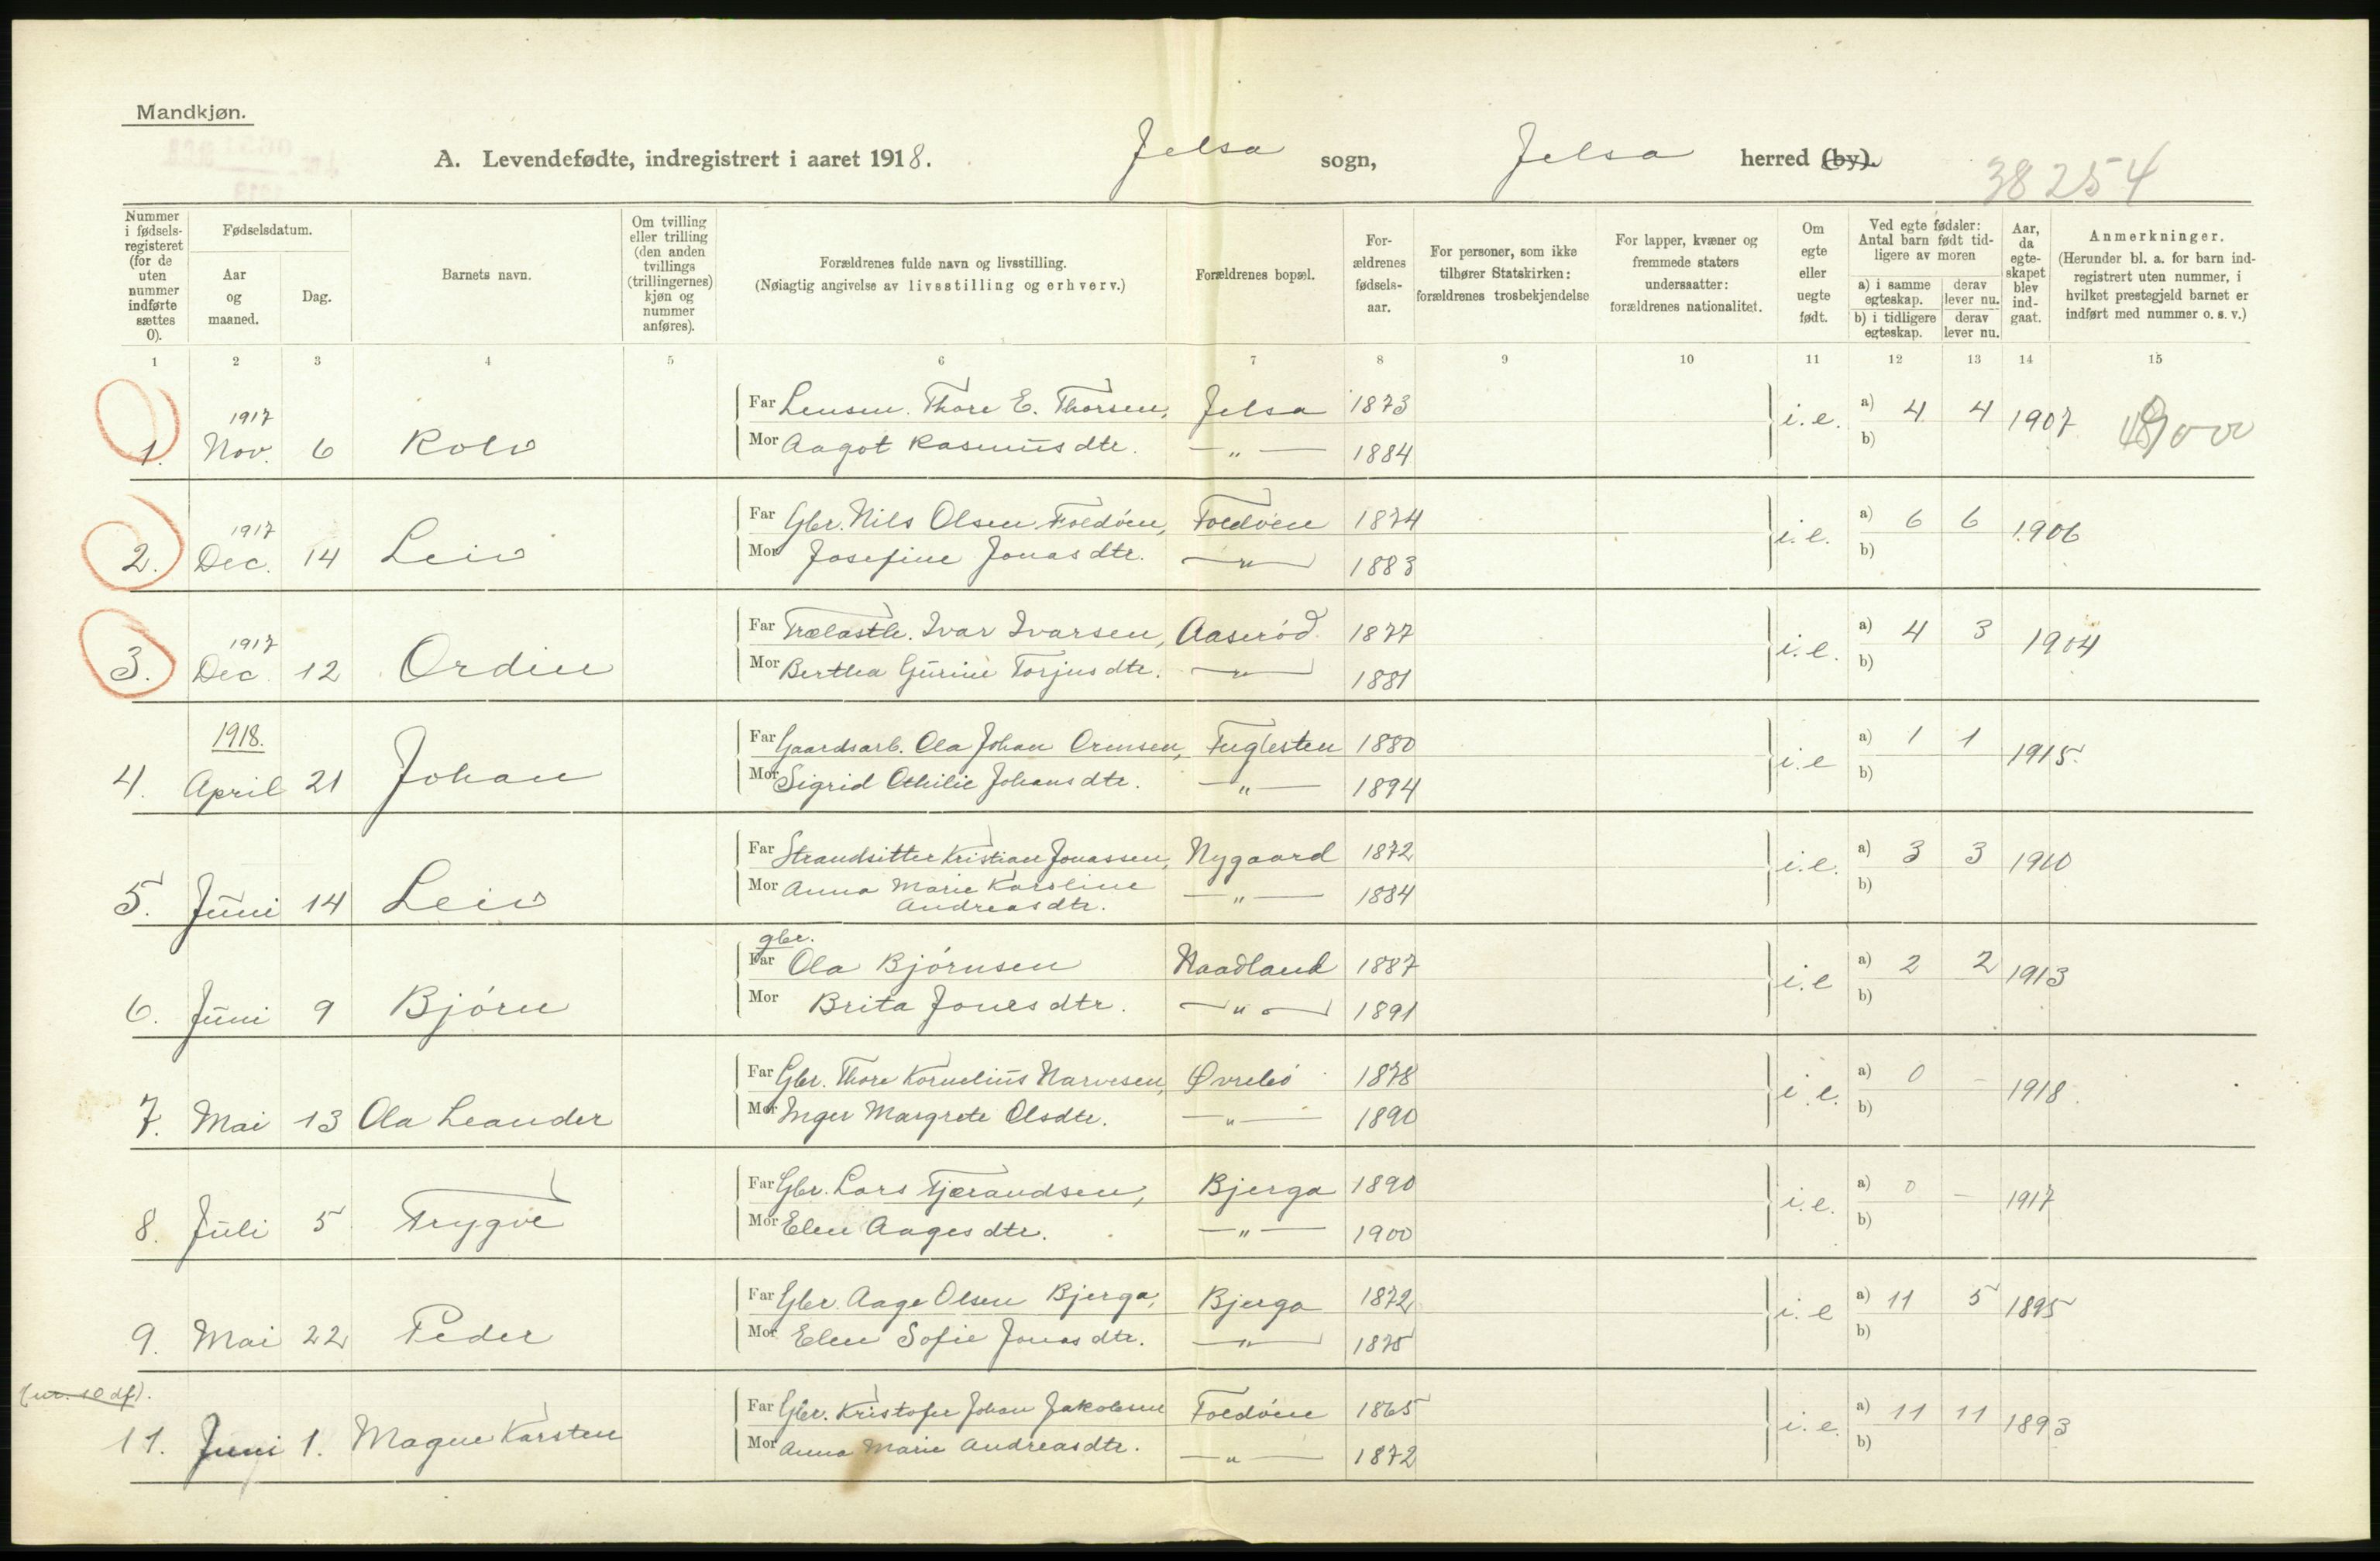 Mandkjøn.
A. Levendefødte, indregistrert i aaret 1918. Jelsa sogn, Jelsa herred (by).
38254
Nummer i fødsels-registeret (for de uten nummer indførte sættes 0).
Fødselsdatum.
Aar og maaned.
Dag.
Barnets navn.
Om tvilling eller trilling (den anden tvillings (trillingernes) kjøn og nummer anføres).
Forældrenes fulde navn og livsstilling.
(Nøiagtig angivelse av livsstilling og erhverv.)
Forældrenes bopæl.
For-ældrenes fødsels-aar.
For personer, som ikke tilhører Statskirken: forældrenes trosbekjendelse
For lapper, kvæner og fremmede staters undersaatter: forældrenes nationalitet.
Om egte eller uegte født.
Ved egte fødsler: Antal barn født tid-ligere av moren
a) i samme egteskap. derav lever nu.
b) i tidligere egteskap. derav lever nu.
Aar, da egte-skapet blev ind-gaat.
Anmerkninger.
(Herunder bl. a. for barn ind-registrert uten nummer, i hvilket prestegjeld barnet er indført med nummer o. s. v.)
1 2 3 4 5 6 7 8 9 10 11 12 13 14 15
1917
Far Lensm. Thore E. Thorsen, Jelsa 1873
1. Nov. 6 Rolv i.e. a) 4 4 1907
Mor Aagot Rasmusdtr. —"— 1884 b)
1917
Far Gbr. Nils Olsen Foldöen, Foldöen 1874
2. Dec. 14 Leiv i.e. a) 6 6 1906
Mor Josefine Jonasdtr. —"— 1883 b)
1917
Far Trælasth. Ivar Ivarsen, Aaseröd 1877
3. Dec. 12 Ordin i.e. a) 4 3 1904
Mor Bertha Gurine Torjusdtr. —"— 1881 b)
1918.
Far Gaardsarb. Ola Johan Ormsen, Fuglesten 1880
4. April 21 Johan i.e a) 1 1 1915.
Mor Sigrid Othilie Johansdtr. —"— 1894 b)
Far Strandsitter Kristian Jonassen, Nygaard 1872
5. Juni 14 Leiv i.e. a) 3 3 1910
Mor Anna Marie Karoline Andreasdtr. —"— 1884 b)
gbr.
Far Ola Björnsen Haadland 1887
6. Juni 9 Björn i.e a) 2 2 1913
Mor Brita Jonesdtr. —"— 1891 b)
Far Gbr. Thore Kornelius Narvesen, Øvrebö 1878
7. Mai 13 Ola Leander i.e. a) 0 — 1918.
Mor Inger Margrete Olsdtr. —"— 1890 b)
Far Gbr. Lars Tjerandsen, Bjerga 1890
8. Juli 5 Trygve i.e. a) 0 — 1917
Mor Elen Aagesdtr. —"— 1900 b)
Far Gbr. Aage Olsen Bjerga, Bjerga 1872
9. Mai 22 Peder i.e a) 11 5 1895
Mor Elen Sofie Jonasdtr. —"— 1875 b)
(nr. 10 df).
Far Gbr. Kristofer Johan Jakobsen Foldöen 1865
11. Juni 1. Magne Karsten i.e. a) 11 11 1893
Mor Anna Marie Andreasdtr. —"— 1872 b)